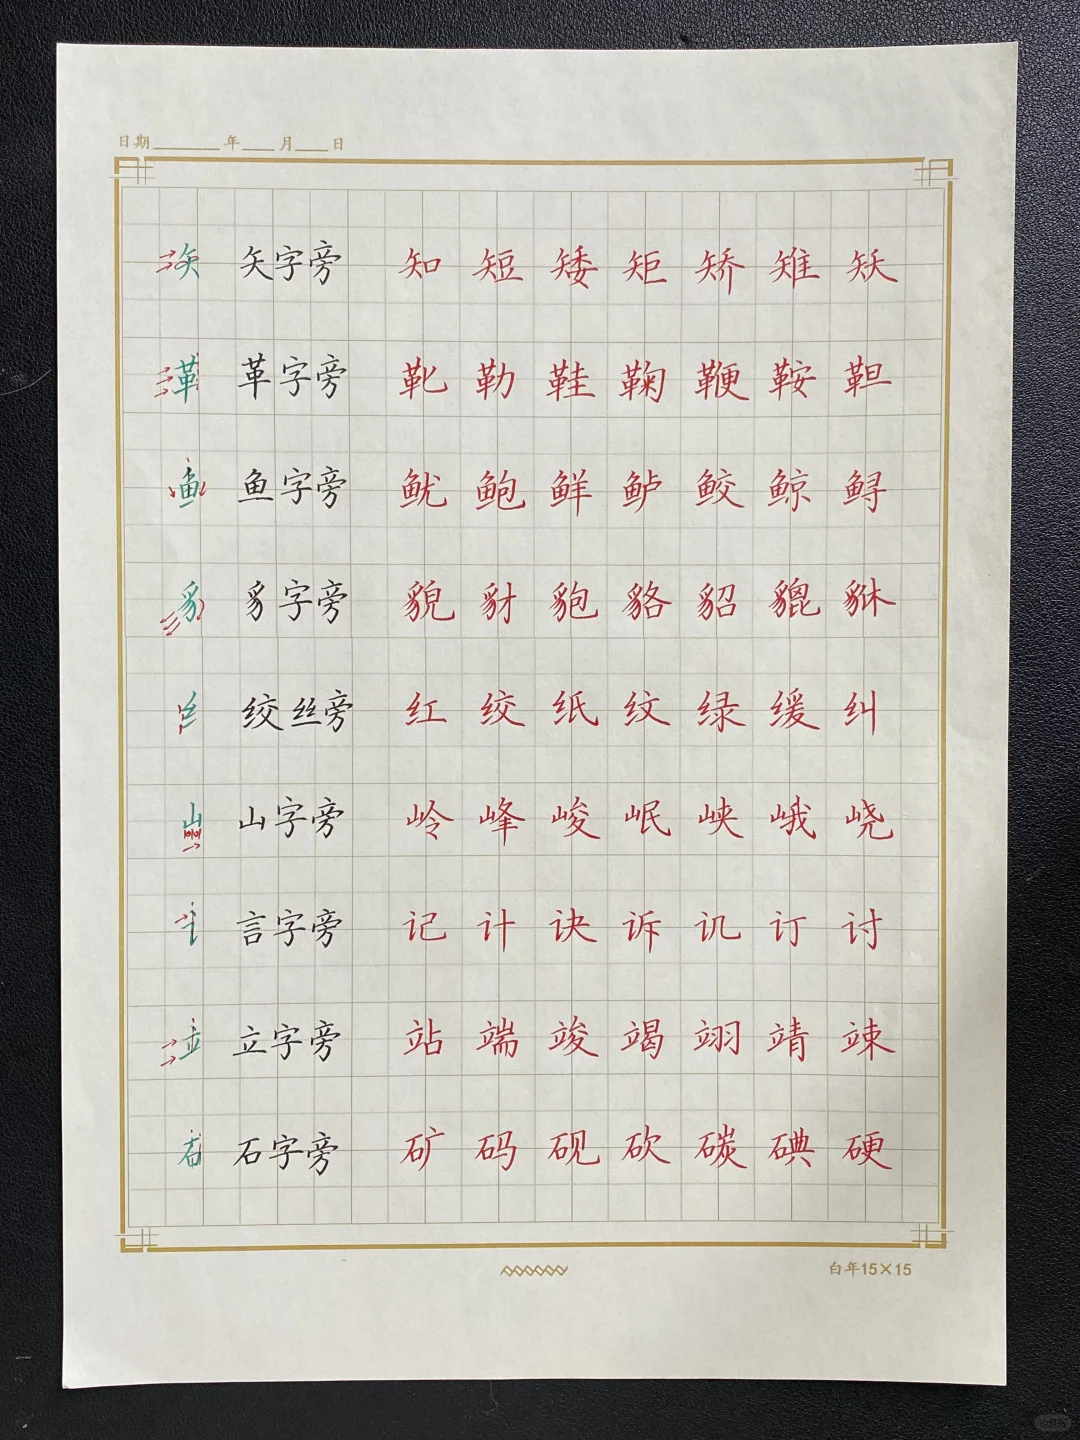 日期 年 月 日
矢 矢字旁 知 短 矮 矩 矫 雉 矨
革 革字旁 靴 勒 鞋 鞠 鞭 鞍 靼
鱼 鱼字旁 鱿 鲍 鲜 鲈 鲛 鲸 鲟
豸 豸字旁 貌 豺 貇 貉 貂 貔 貅
纟 绞丝旁 红 绞 纸 纹 绿 缓 纠
山 山字旁 岭 峰 峻 岷 峡 峨 峣
讠 言字旁 记 计 诀 诉 讥 订 讨
立 立字旁 站 端 竣 竭 翊 靖 竦
石 石字旁 矿 码 砚 砍 碳 碘 硬
白年15×15